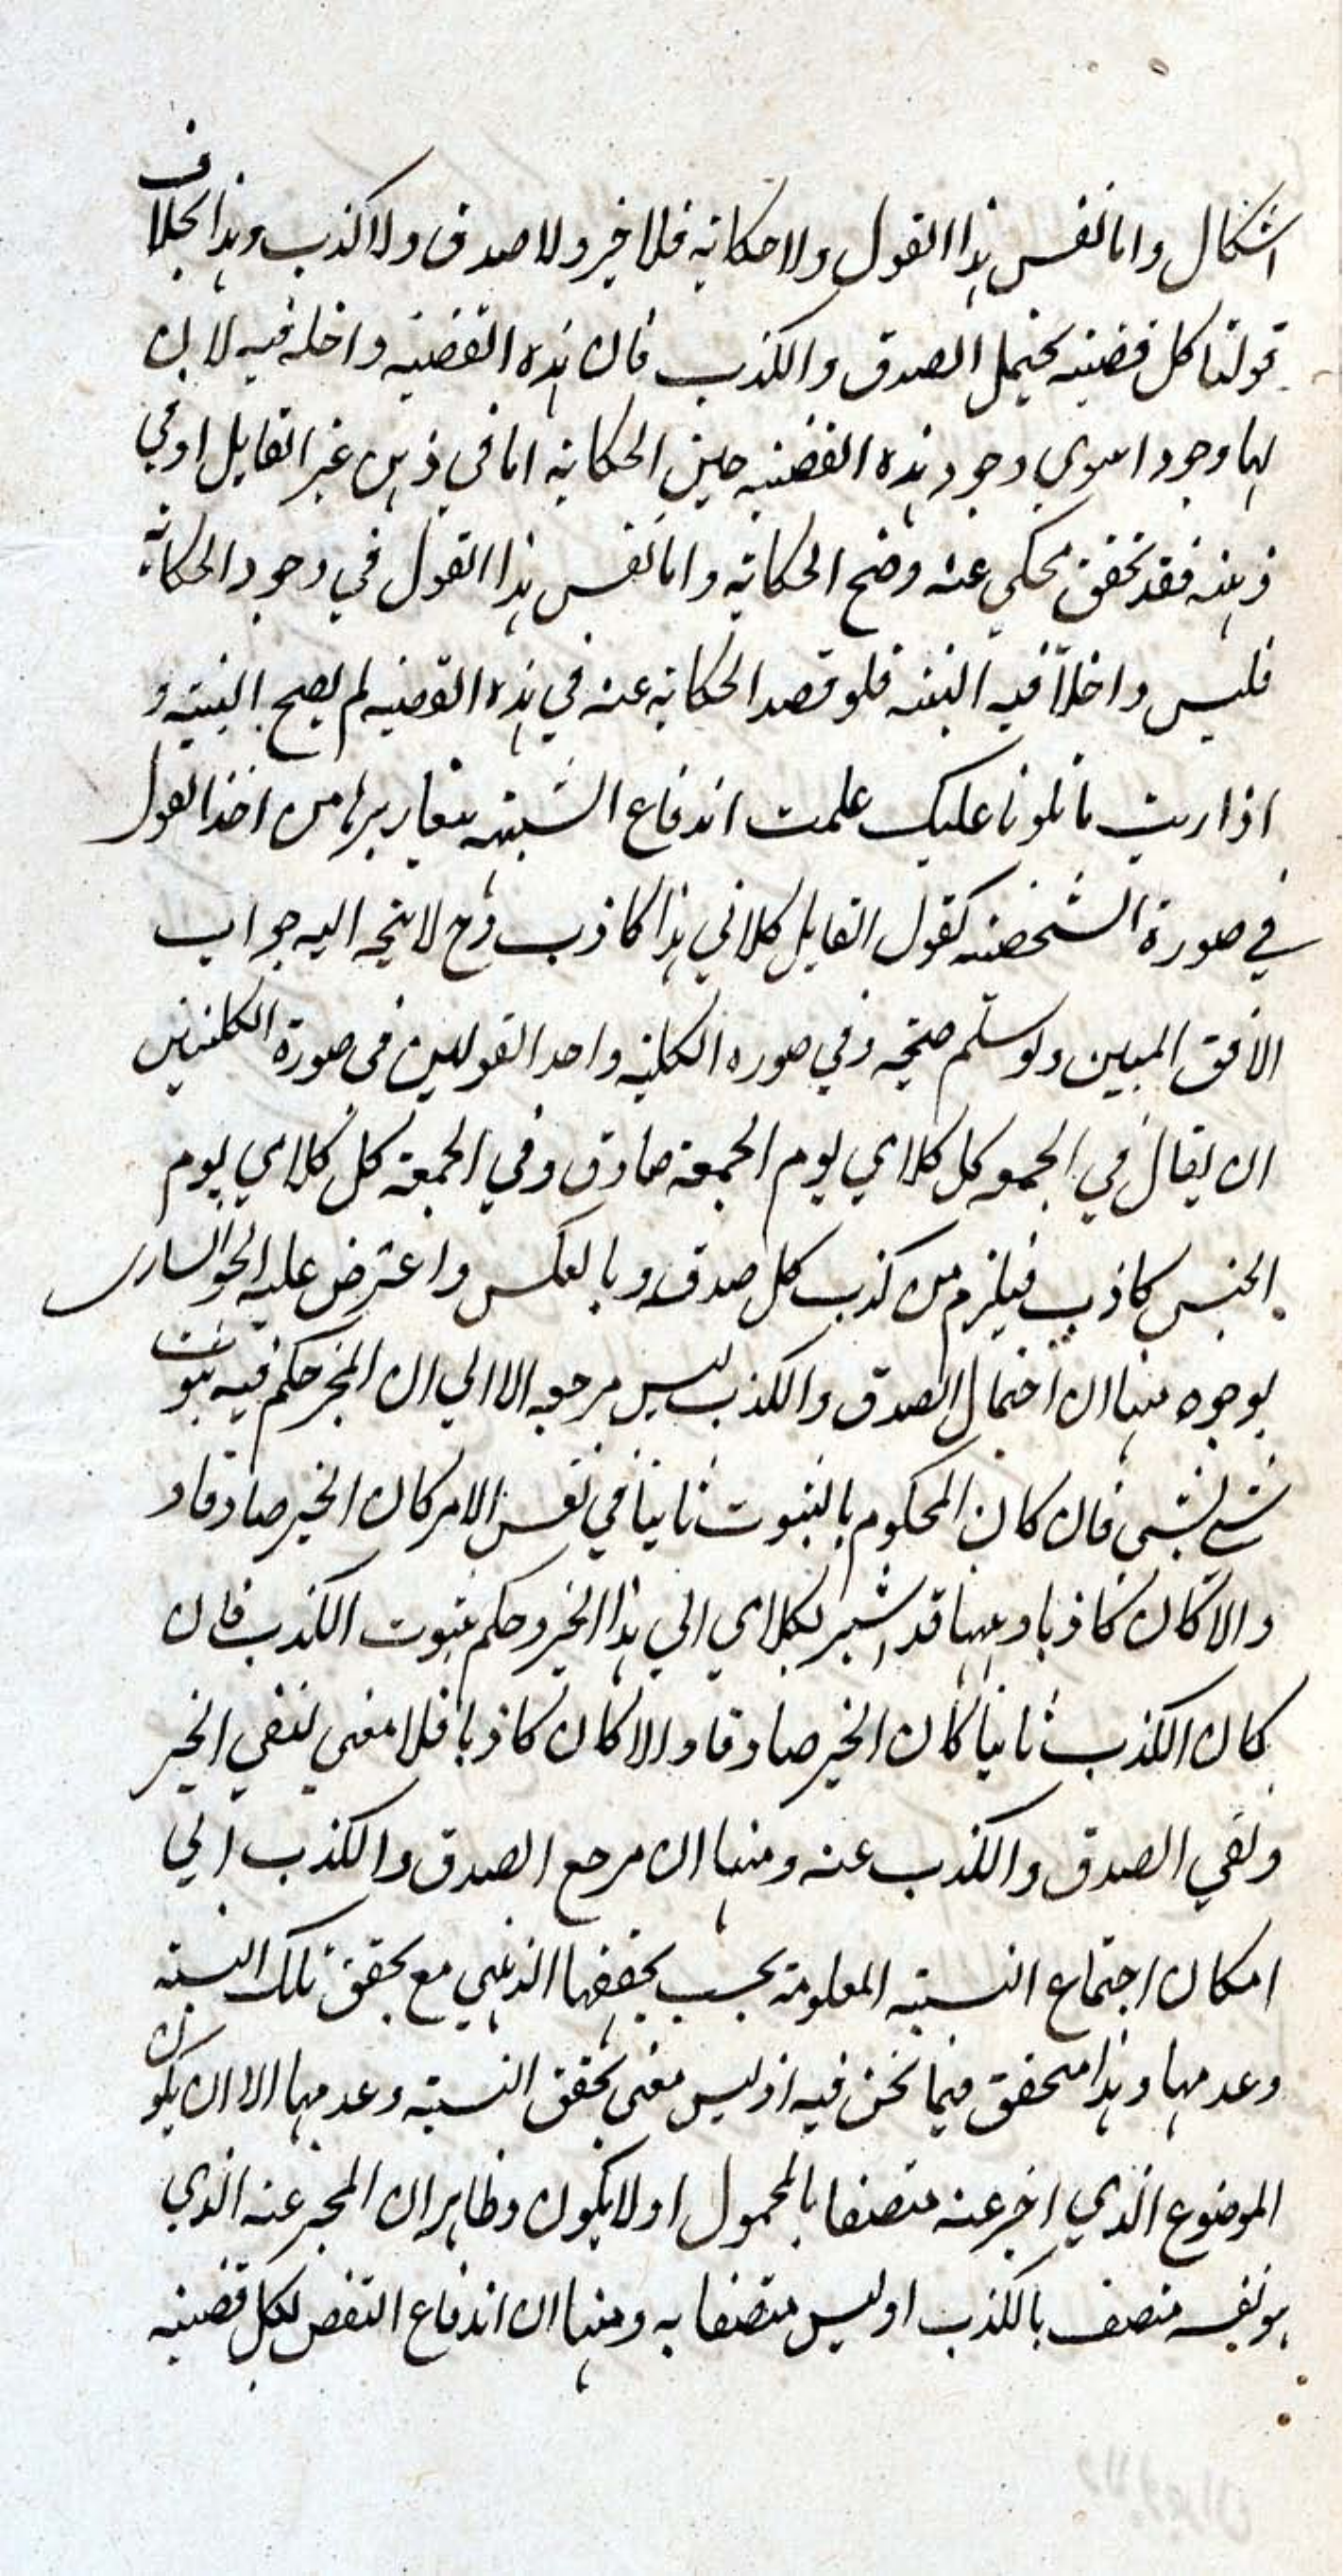 اشكال واما نفس هذا القول ولا حكاية فلا خبر ولا صدق ولا كذب وهذا بخلاف
قولنا كل قضية يحتمل الصدق والكذب فان هذه القضية داخلة فيه لا بان
لها وجودا سوى وجود هذه القضية حين الحكاية اما في ذهن غير القايل او في
ذهنه فقد تحقق محكي عنه وضح الحكاية واما نفس هذا القول في وجود الحكاية
فليس داخلاً فيه البتة فلو قصد الحكاية عنه في هذه القضية لم يصح البتة و
اذا ريت ما تلونا عليك علمت اندفاع الشبهة بتقاريرها من اخذ القول
في صورة الشخصية كقول القايل كلامي هذا كاذب وح لا يتجه اليه جواب
الافق المبين ولو سلم صحته وفي صوره الكلية واحد القولين في صورة الكليتين
ان يقال في الجمعه كل كلامي يوم الجمعة صادق وفي الجمعة كل كلامي يوم
الخميس كاذب فيلزم من كذب كل صدقه وبالعكس واعترض عليه الخوانساري
بوجوه منها ان احتمال الصدق والكذب ليس مرجعه الا الي ان المخبر حكم فيه بثبوت
شي لشي فان كان المحكوم بالثبوت ثابتا في نفس الامر كان الخبر صادقا و
والا كان كاذبا وههنا قد اشير بكلامي الي هذا الخبر وحكم بثبوت الكذب فان
كان الكذب ثابتا كان الخبر صادقا والا كان كاذبا فلا معنى لنفي الخبر
ونفي الصدق والكذب عنه ومنها ان مرجع الصدق والكذب الي
امكان اجتماع النسبة المعلومة بحسب تحققها الذهني مع تحقق تلك النسبة
وعدمها وهذا متحقق فيما نحن فيه اذ ليس معنى تحقق النسبة وعدمها الا ان يكون
الموضوع الذي اخبر عنه متصفا بالمحمول او لا يكون وظاهر ان المخبر عنه الذي
هو نفسه متصف بالكذب او ليس متصفا به ومنها ان اندفاع النقض لكل قضية